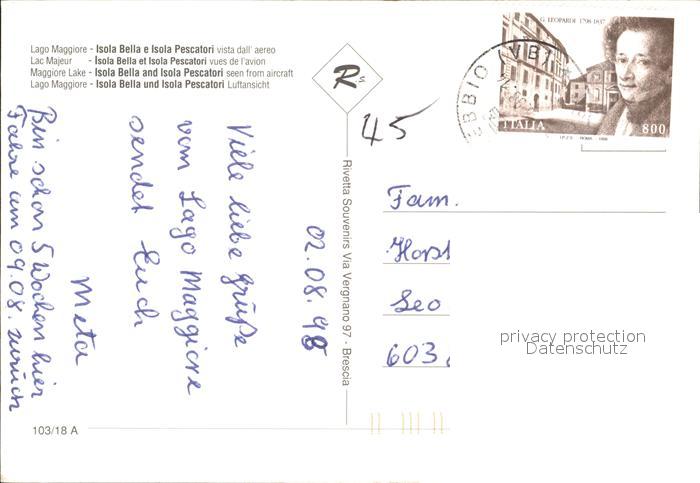 Lago Maggiore - Isola Bella e Isola Pescatori vista dall' aereo
Lac Majeur - Isola Bella et Isola Pescatori vues de l'avion
Maggiore Lake - Isola Bella and Isola Pescatori seen from aircraft
Lago Maggiore - Isola Bella und Isola Pescatori Luftansicht
Rs
G. LEOPARDI 1798-1837
EBBIO (VB)
ITALIA
800
I.P.Z.S. ROMA 1998
45
02.08.98
Viele liebe Grüße
vom Lago Maggiore
sendet Euch
Meta
Bin schon 5 Wochen hier
Fahre am 09.08. zurück
Rivetta Souvenirs Via Vergnano 97 - Brescia
Fam.
Horst
Seo
603
privacy protection
Datenschutz
103/18 A